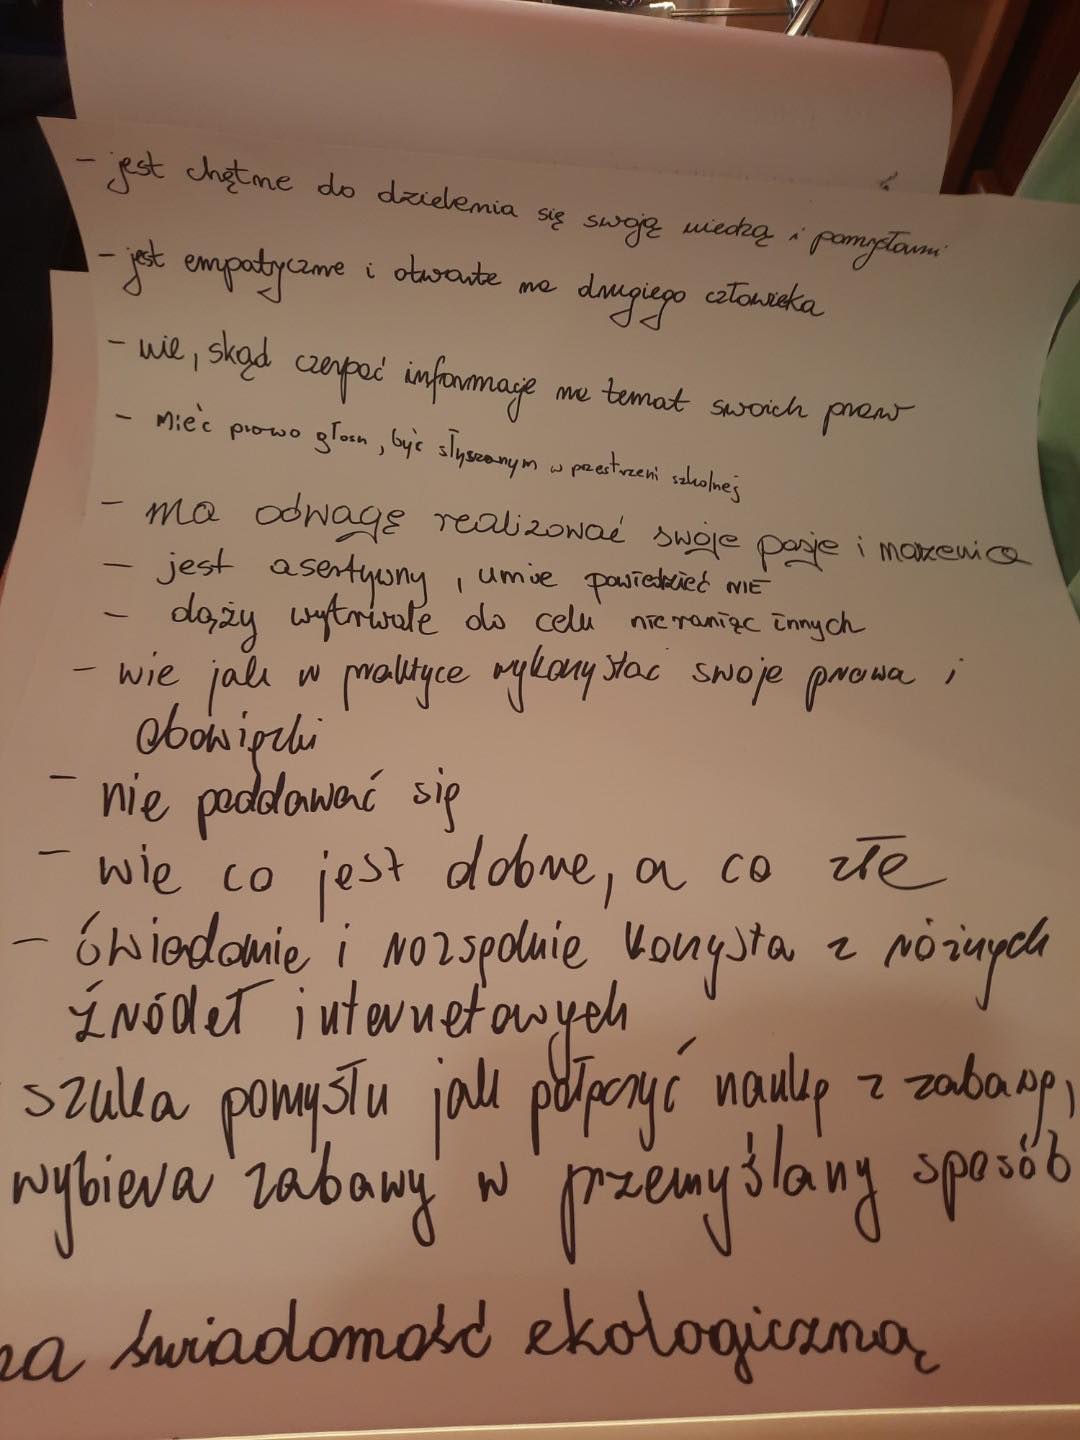 - jest chętne do dzielenia się swoją wiedzą i pomysłami
- jest empatyczne i otwarte na drugiego człowieka
- wie, skąd czerpać informacje na temat swoich praw
- mieć prawo głosu, być słyszanym w przestrzeni szkolnej
- ma odwagę realizować swoje pasje i marzenica
- jest asertywny, umie powiedzieć NIE
- dąży wytrwale do celu nie raniąc innych
- wie jak w praktyce wykorzystać swoje prawa i
obowiązki
- nie poddawać się
- wie co jest dobre, a co złe
- świadomie i rozsądnie korzysta z różnych
źródeł internetowych
szuka pomysłu jak połączyć naukę z zabawą,
wybiera zabawy w przemyślany sposób
świadomość ekologiczną